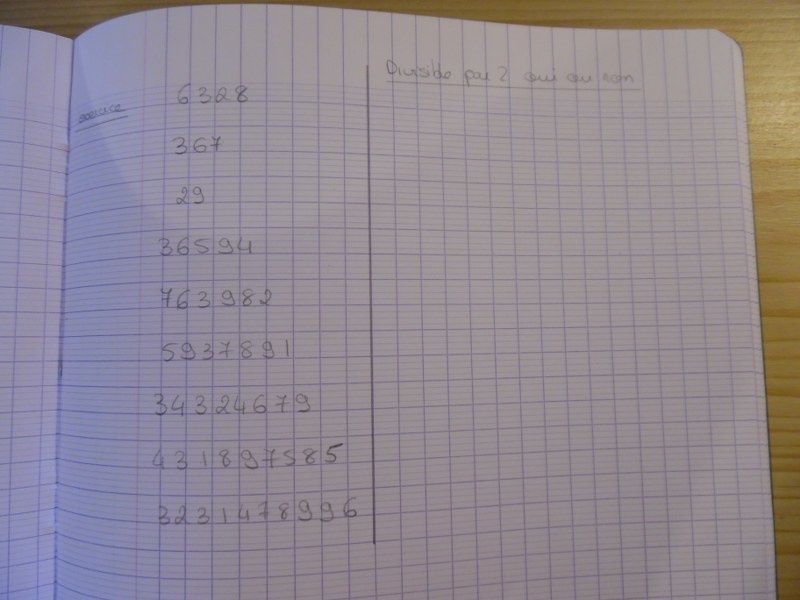 Divisible par 2 oui ou non
exercice
6328
367
29
36594
763982
5937891
34324679
431897585
3231478996